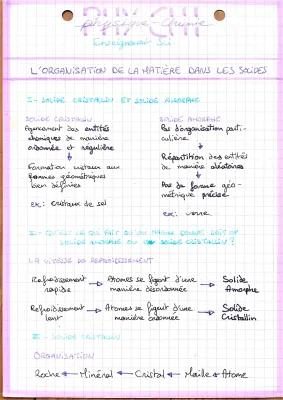 PHY-CHI
physique-chimie
Enseignement Sci
L'ORGANISATION DE LA MATIÈRE DANS LES SOLIDES
I - SOLIDE CRISTALLIN ET SOLIDE AMORPHE
SOLIDE CRISTALLIN
Agencement des entités
chimiques de manière
ordonnée et régulière
Formation
formes géométriques
bien définies
ex: cristaux de sel
SOLIDE AMORPHE
Pas d'organisation parti-
culière
Répartition des entités
de manière aléatoires
Pas de forme géo-
métrique précise
ex: verre
SOLIDE AMORPHE OU SOLIDE CRISTALLIN ?
LA VITESSE DU REFROIDISSEMENT
Refroidissement rapide → Atomes se figent d'une manière désordonnée → Solide Amorphe
Refroidissement lent → Atomes se figent d'une manière ordonnée → Solide Cristallin
SOLIDE CRISTALLIN
ORGANISATION
Roche ← Minéral ← Cristal ← Maille ← Atome